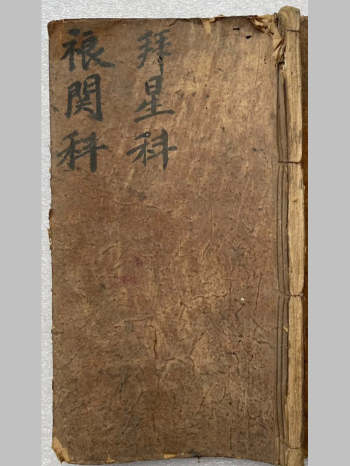 拜星科
関科